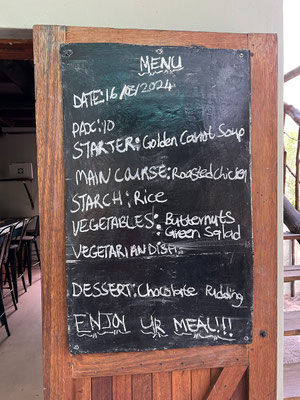 MENU
DATE:16/05/2024
PAX:10
STARTER: Golden Carrot Soup
MAIN COURSE: Roasted Chicken
STARCH: Rice
VEGETABLES: Butternuts
: Green Salad
VEGETARIAN DISH:
DESSERT: Chocolate Pudding
ENJOY UR MEAL!!!